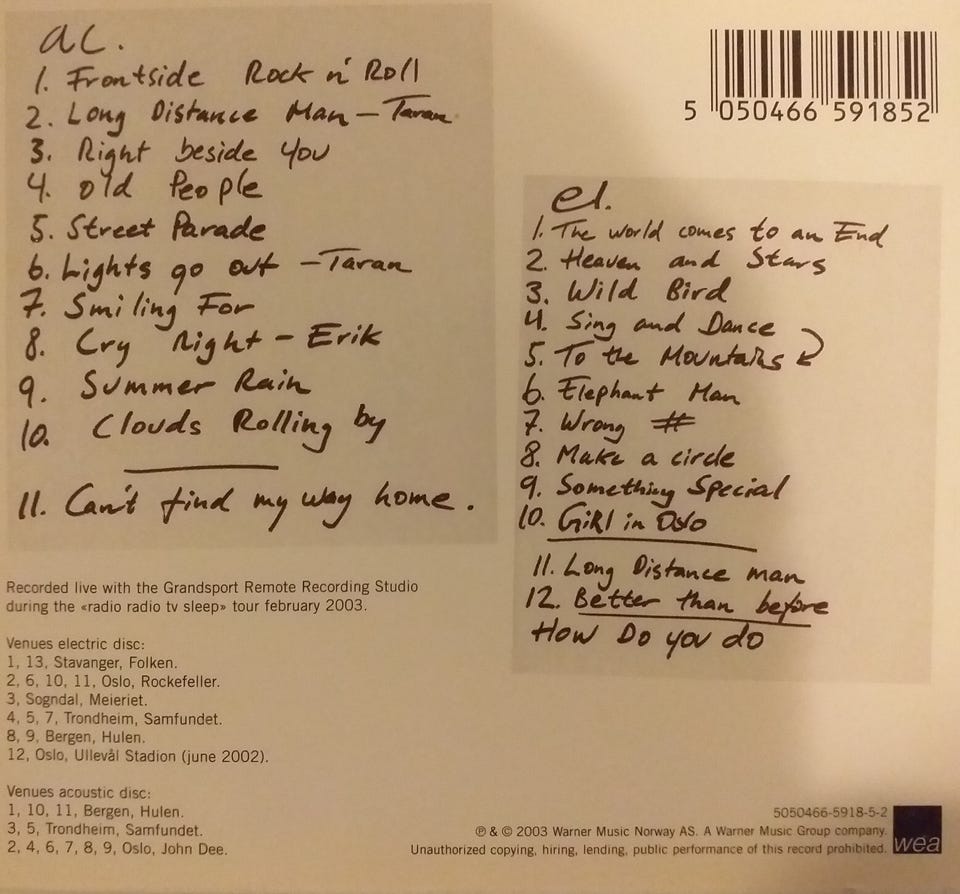 ac.
1. Frontside Rock n' Roll
2. Long Distance Man – Taran
3. Right beside you
4. Old People
5. Street Parade
6. Lights go out – Taran
7. Smiling For
8. Cry Right – Erik
9. Summer Rain
10. Clouds Rolling by
11. Can't find my way home.
5 050466 591852
el.
1. The world comes to an End
2. Heaven and Stars
3. Wild Bird
4. Sing and Dance
5. To the Mountains
6. Elephant Man
7. Wrong #
8. Make a circle
9. Something Special
10. GiRl in Oslo
11. Long Distance man
12. Better than before
How Do you do
Recorded live with the Grandsport Remote Recording Studio
during the «radio radio tv sleep» tour february 2003.
Venues electric disc:
1, 13, Stavanger, Folken.
2, 6, 10, 11, Oslo, Rockefeller.
3, Sogndal, Meieriet.
4, 5, 7, Trondheim, Samfundet.
8, 9, Bergen, Hulen.
12, Oslo, Ullevål Stadion (june 2002).
Venues acoustic disc:
1, 10, 11, Bergen, Hulen.
3, 5, Trondheim, Samfundet.
2, 4, 6, 7, 8, 9, Oslo, John Dee.
5050466-5918-5-2
℗ & © 2003 Warner Music Norway AS. A Warner Music Group company.
Unauthorized copying, hiring, lending, public performance of this record prohibited.
wea